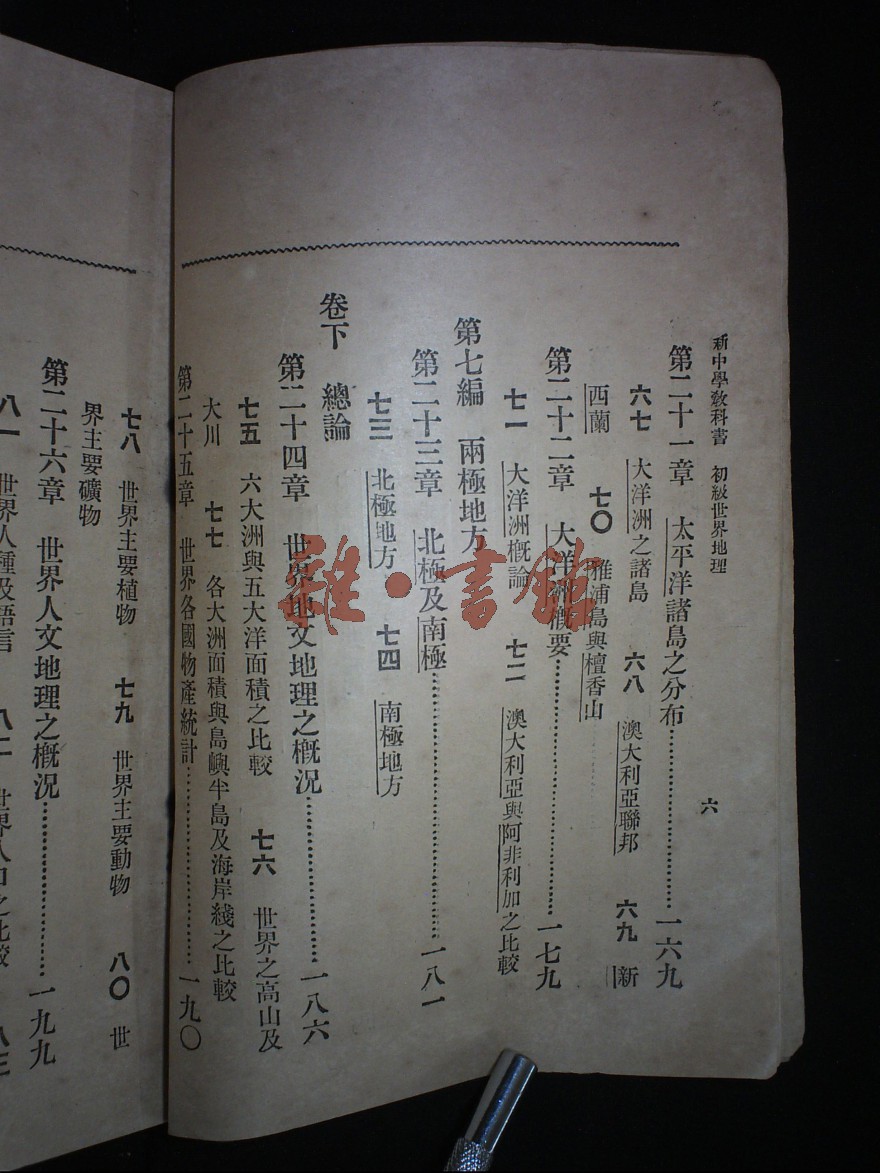 新中學教科書　初級世界地理
六
第二十一章　太平洋諸島之分布……一六九
六七　大洋洲之諸島　六八　澳大利亞聯邦　六九　新
西蘭　七〇　雅浦島與檀香山
第二十二章　大洋洲概要……一七九
七一　大洋洲概論　七二　澳大利亞與阿非利加之比較
第七編　兩極地方
第二十三章　北極及南極……一八一
七三　北極地方　七四　南極地方
卷下　總論
第二十四章　世界地文地理之概況……一八六
七五　六大洲與五大洋面積之比較　七六　世界之高山及
大川　七七　各大洲面積與島嶼半島及海岸綫之比較
第二十五章　世界各國物產統計……一九〇
七八　世界主要植物　七九　世界主要動物　八〇　世
界主要礦物
第二十六章　世界人文地理之概況……一九九
八一　世界人種及語言　八二　世界人口之比較　八三
雜·書館